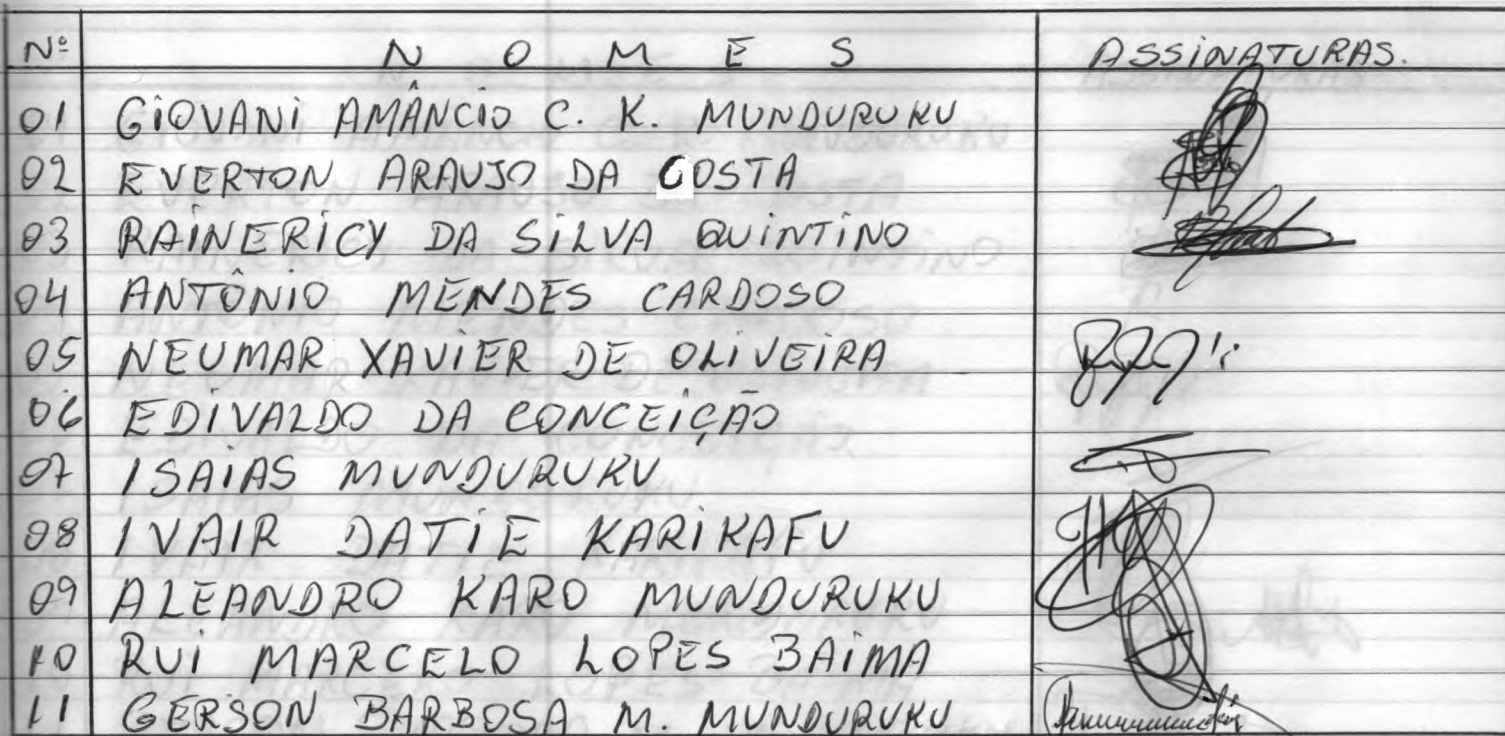 Nº N O M E S ASSINATURAS.
01 GIOVANI AMÂNCIO C. K. MUNDURUKU
02 EVERTON ARAUJO DA COSTA
03 RAINERICY DA SILVA QUINTINO
04 ANTÔNIO MENDES CARDOSO
05 NEUMAR XAVIER DE OLIVEIRA
06 EDIVALDO DA CONCEIÇÃO
07 ISAIAS MUNDURUKU
08 IVAIR DATIE KARIKAFU
09 ALEANDRO KARO MUNDURUKU
10 RUI MARCELO LOPES BAIMA
11 GERSON BARBOSA M. MUNDURUKU